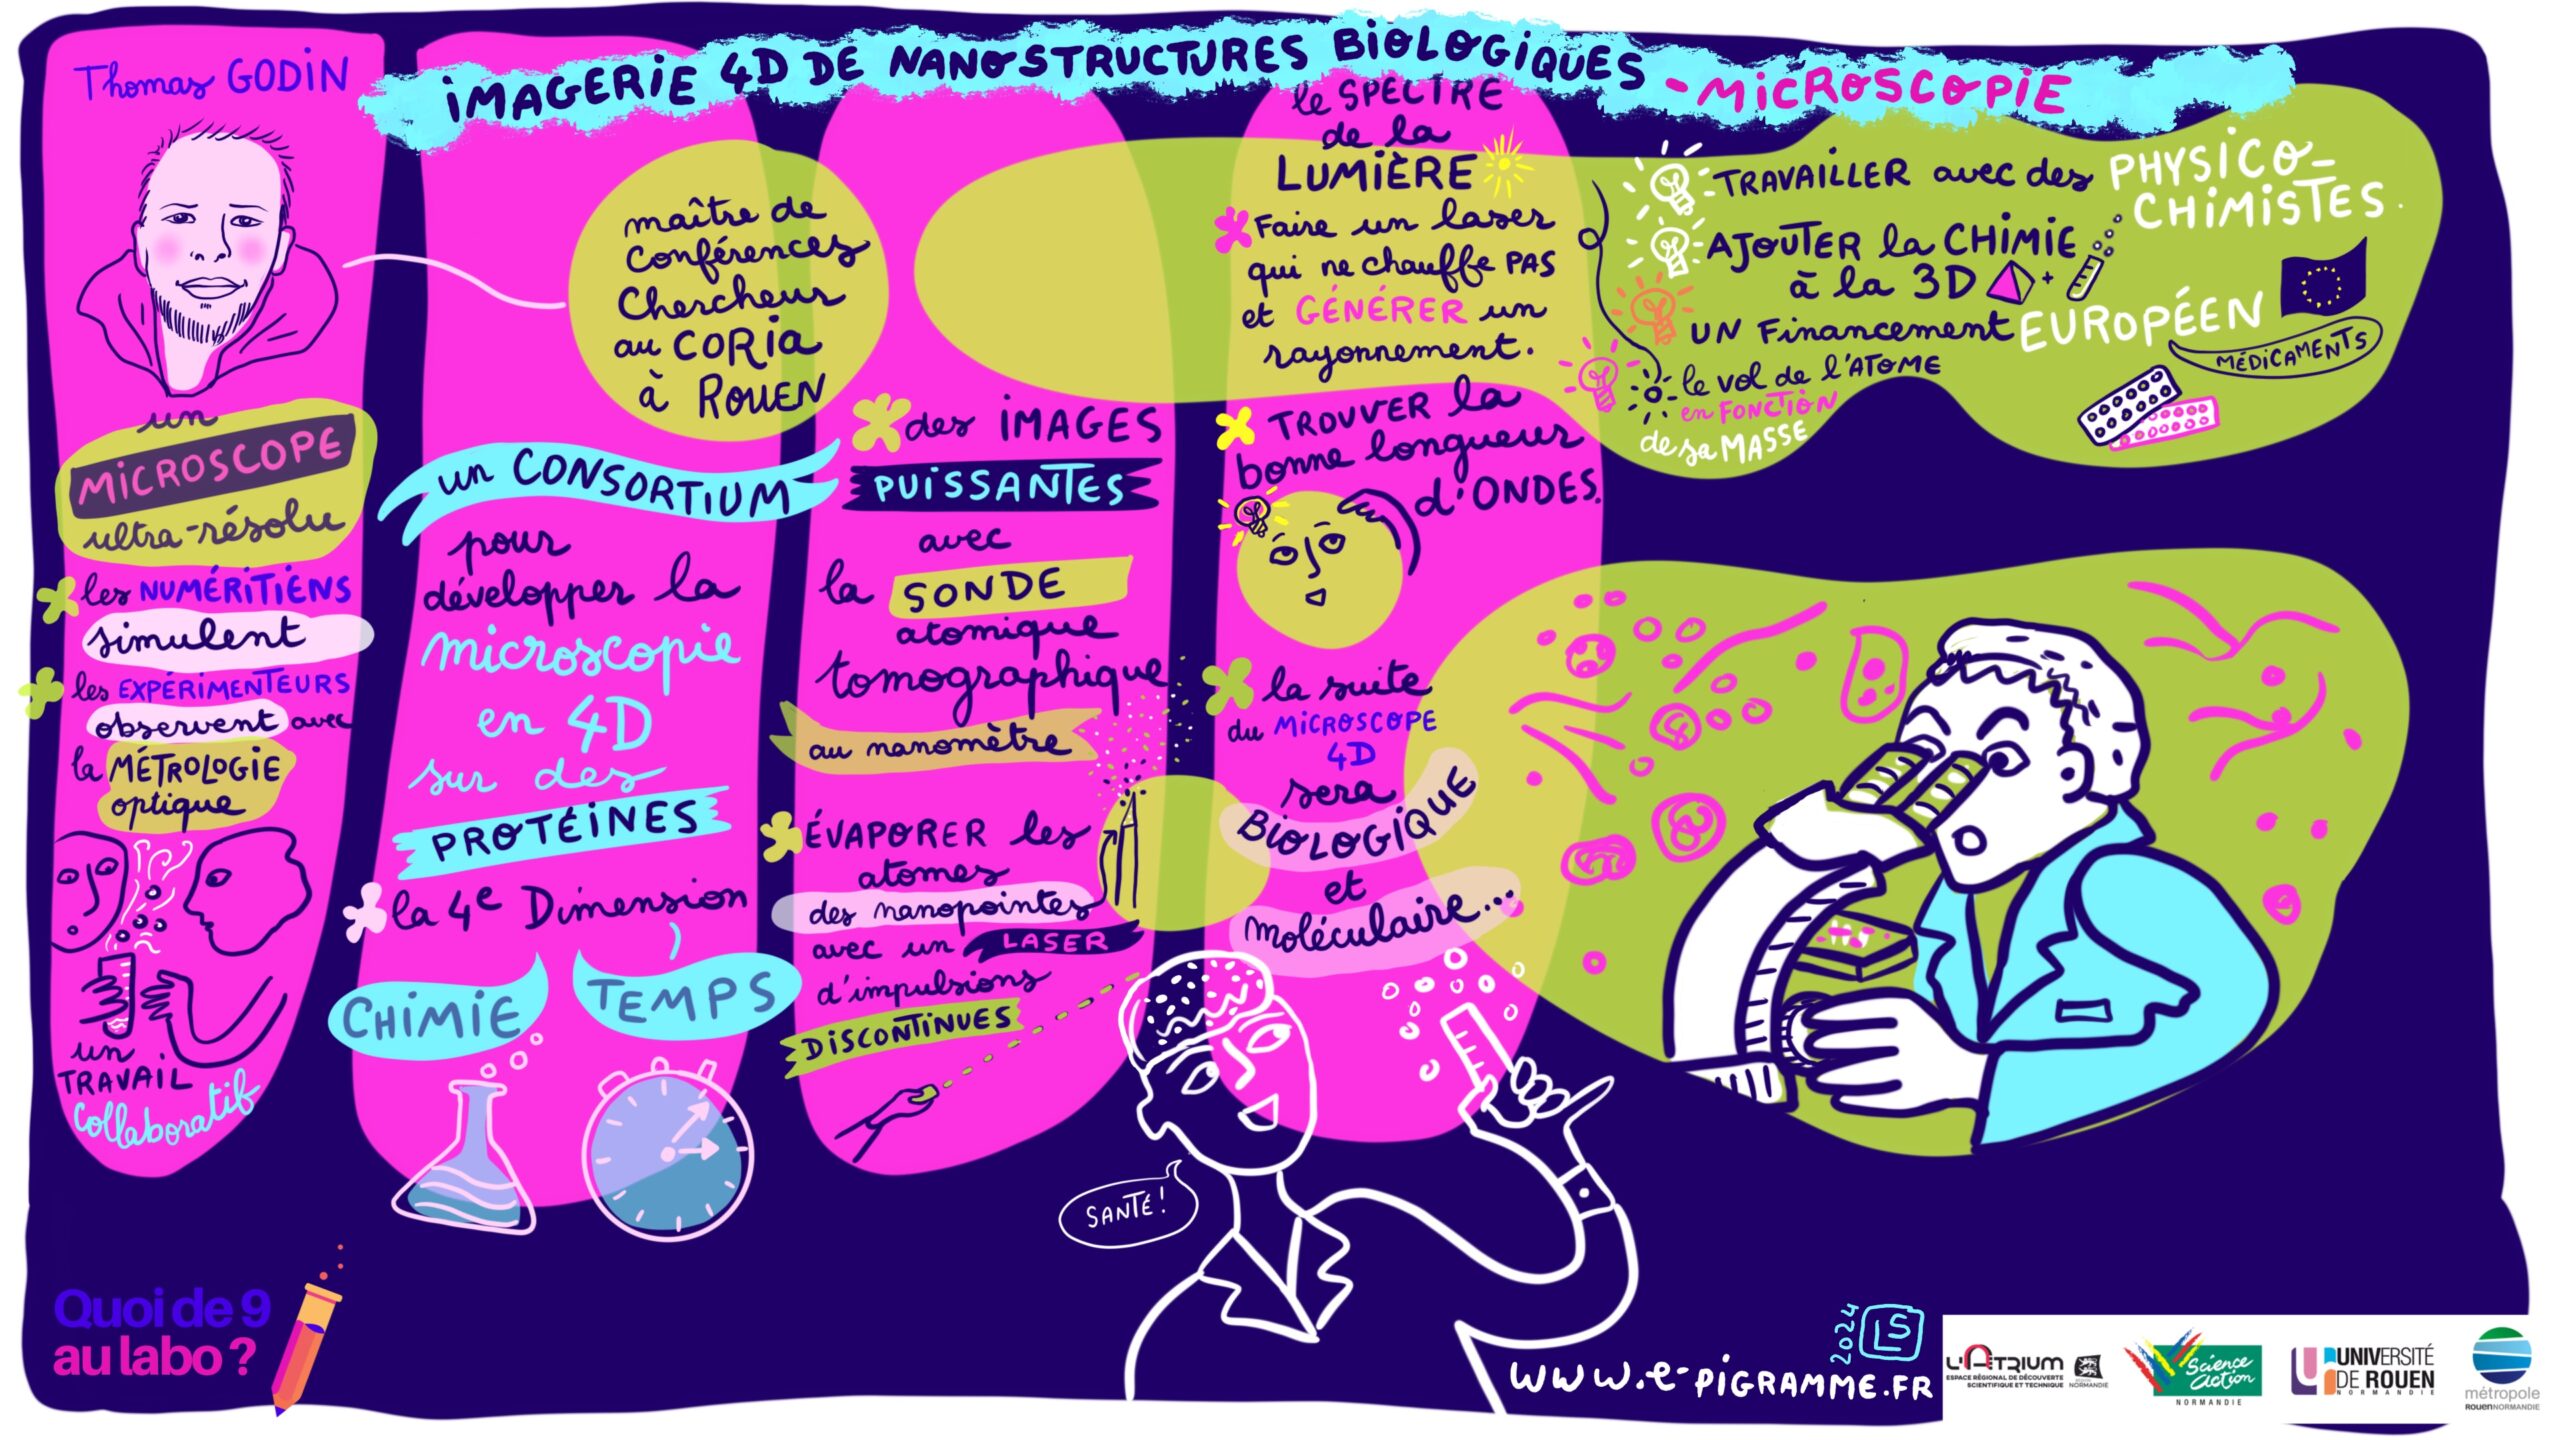 iMAGERiE 4D DE NANOSTRUCTURES BiOLOGiQUES - MiCROSCOPiE
Thomas GODiN
maître de
Conférences
Chercheur
au CORia
à ROUEN
un
MiCROSCOPE
ultra-résolu
les NUMÉRiTiENS
simulent
les EXPÉRiMENTEURS
observent avec
la MÉTROLOGiE
optique
un
TRAVAiL
Collaboratif
un CONSORTiUM
pour
développer la
microscopie
en 4D
sur des
PROTÉiNES
la 4e Dimension
CHiMiE
TEMPS
des iMAGES
PUiSSANTES
avec
la SONDE
atomique
tomographique
au nanomètre
ÉVAPORER les
atomes
des nanopointes
avec un LASER
d'impulsions
DiSCONTiNUES
le SPECTRE
de la
LUMiÈRE
Faire un laser
qui ne chauffe PAS
et GÉNÉRER un
rayonnement.
TROUVER la
bonne longueur
d'ONDES.
la suite
du MiCROSCOPE
4D
sera
BiOLOGiQUE
et
moléculaire...
SANTÉ!
TRAVAiLLER avec des PHYSiCO-
CHiMiSTES.
AJOUTER la CHiMiE
à la 3D +
UN Financement EUROPÉEN
MÉDiCAMENTS
le vol de l'ATOME
en FONCTiON
de sa MASSE
Quoi de 9
au labo ?
2024
LS
www.e-PiGRAMME.FR
L'ATRIUM
ESPACE RÉGIONAL DE DÉCOUVERTE
SCIENTIFIQUE ET TECHNIQUE
NORMANDIE
Science
action
NORMANDIE
UNIVERSITÉ
DE ROUEN
NORMANDIE
métropole
ROUENNORMANDIE